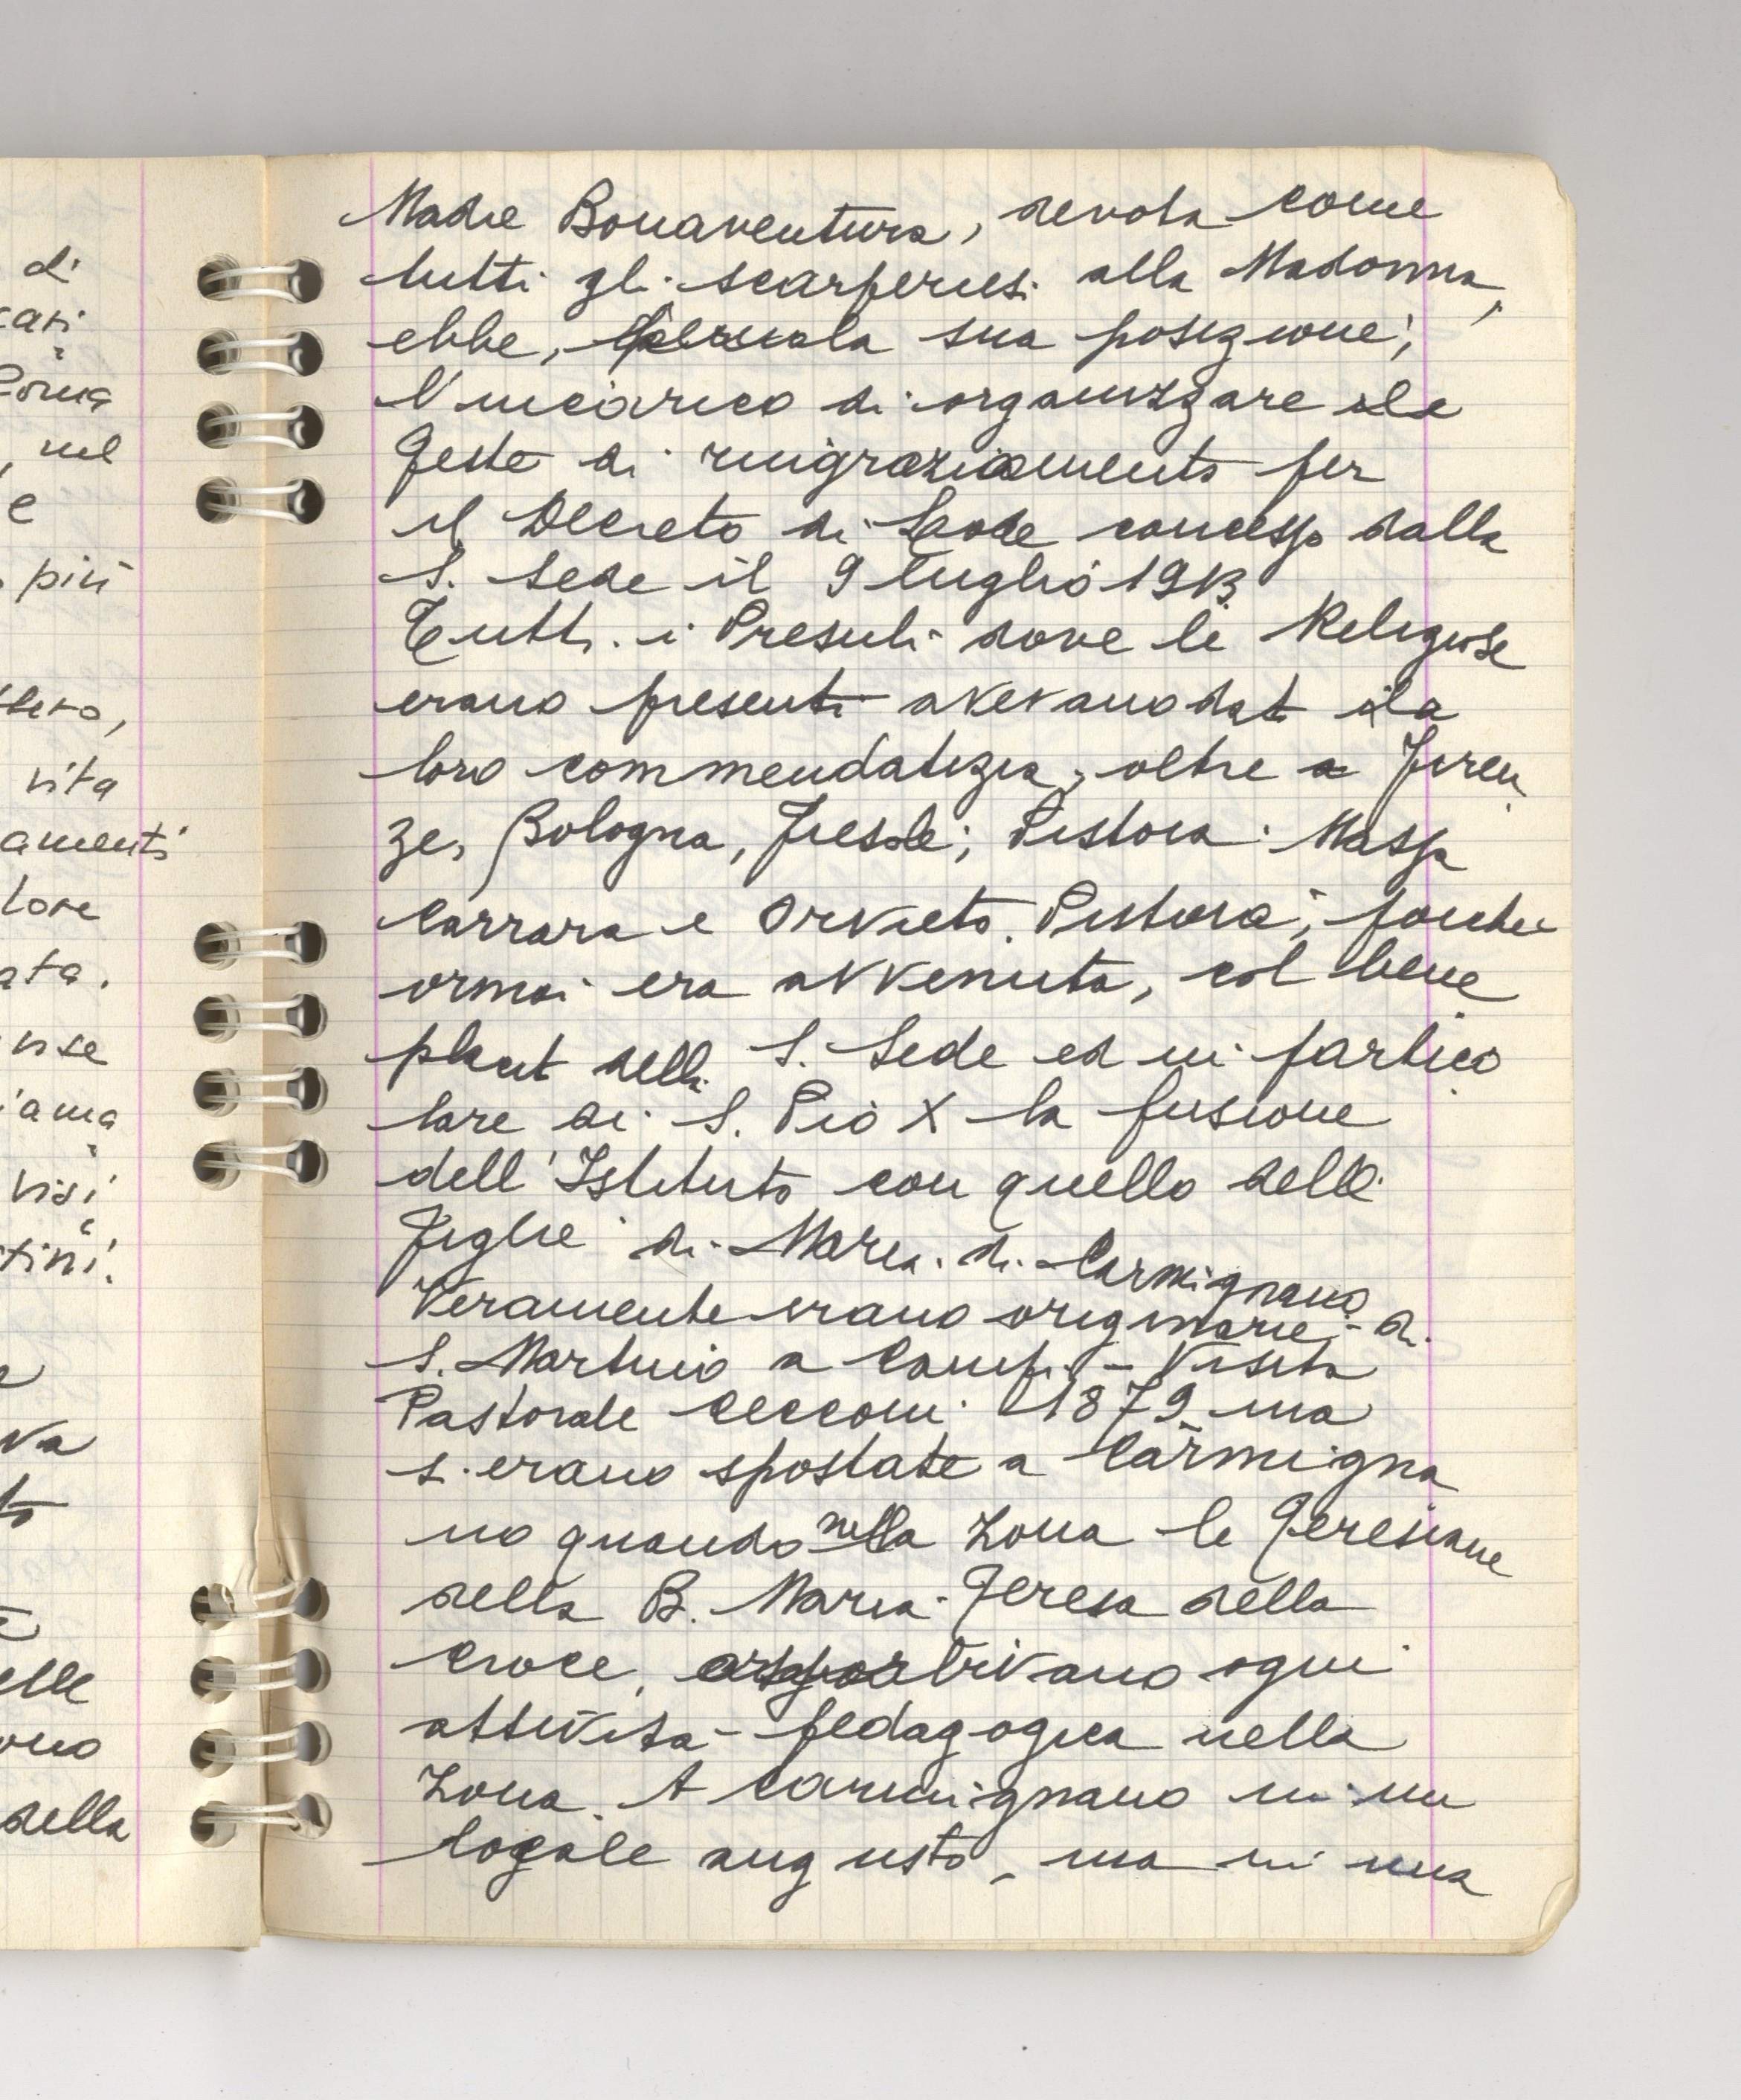 di
cari
Roma
, nel
e
più
stero,
vita
amenti
lore
ata.
nse
iama
visi
tini.
va
to
elle
ono
della
Madre Bonaventura, devota come
tutti gli scarperiesi alla Madonna,
ebbe, la sua posizione,
l'incarico di organizzare le
feste di ringraziamento per
il Decreto di Lode concesso dalla
S. Sede il 9 luglio 1913
Tutti i Presuli dove le Religiose
erano presenti avevano dat la
loro commendatizia, oltre a Firen
ze, Bologna, Fiesole, Pistoia Massa
Carrara e Orvieto. Pistoia, perché
ormai era avvenuta, col bene
placit della S. Sede ed in partico
lare di S. Pio X la fusione
dell'Istituto con quello delle
Figlie di Maria di Carmignano
Veramente erano originarie di
S. Martino a Campi - Visita
Pastorale Cecconi 1879 ma
s. erano spostate a Carmigna
no quando nella zona le Teresiane
della B. Maria Teresa della
Croce, ogni
attività pedagogica nella
zona. A Carmignano in un
locale angusto, ma in una